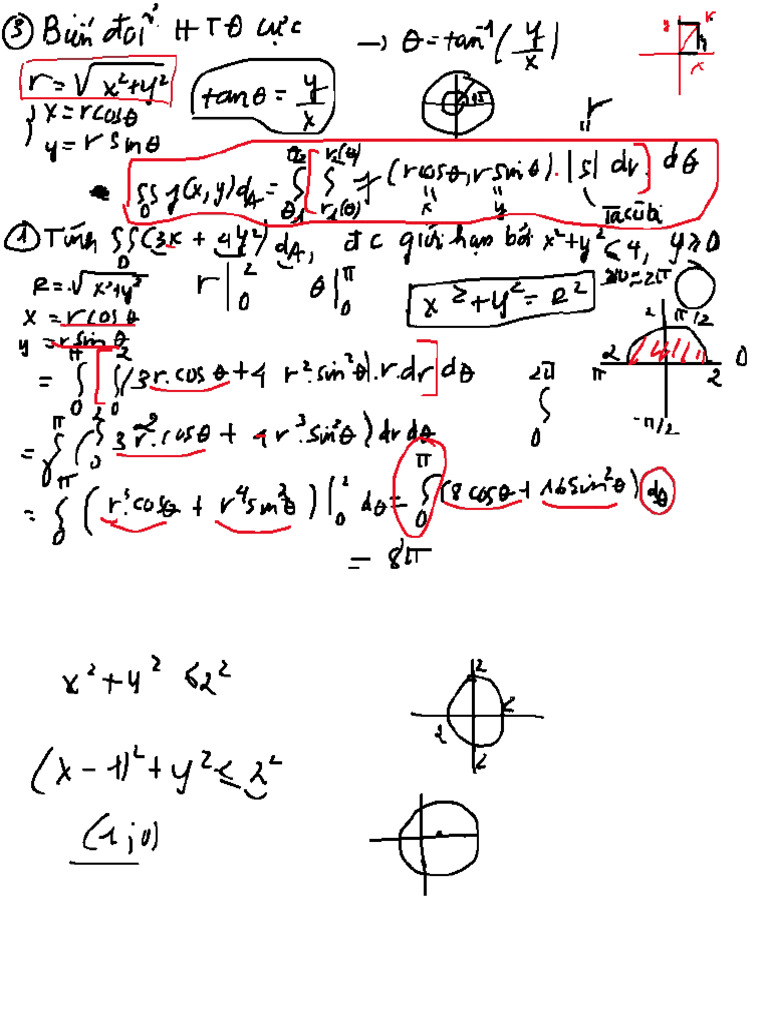 ③ Biến đổi HTĐ cực → θ = tan⁻¹(y/x)
r = √(x²+y²)
tanθ = y/x
x = rcosθ
y = r sinθ
r
∬_D f(x,y)dA = ∫_θ1^θ2 [∫_r1(θ)^r2(θ) f(rcosθ, rsinθ).|J| dr] dθ
x y Jacôbi
① Tính ∬_D (3x + 4y²) dA, đc giới hạn bởi x²+y² ≤ 4, y ≥ 0
R = √(x²+y²) r|₀² θ|₀^π x²+y² = R² 360 = 2π
x = rcosθ
y = rsinθ
2 π/2
2 π 2 0
-π/2
= ∫₀^π [∫₀² (3r.cosθ + 4 r².sin²θ).r.dr] dθ
2π ∫ 0
= ∫₀^π (∫₀² 3r².cosθ + 4r³.sin²θ) dr dθ
= ∫₀^π (r³cosθ + r⁴sin²θ)|₀² dθ = ∫₀^π (8cosθ + 16sin²θ) dθ
= 8π
x² + y² ≤ 2²
2
2
2
2
(x - 1)² + y² ≤ 2²
(1;0)